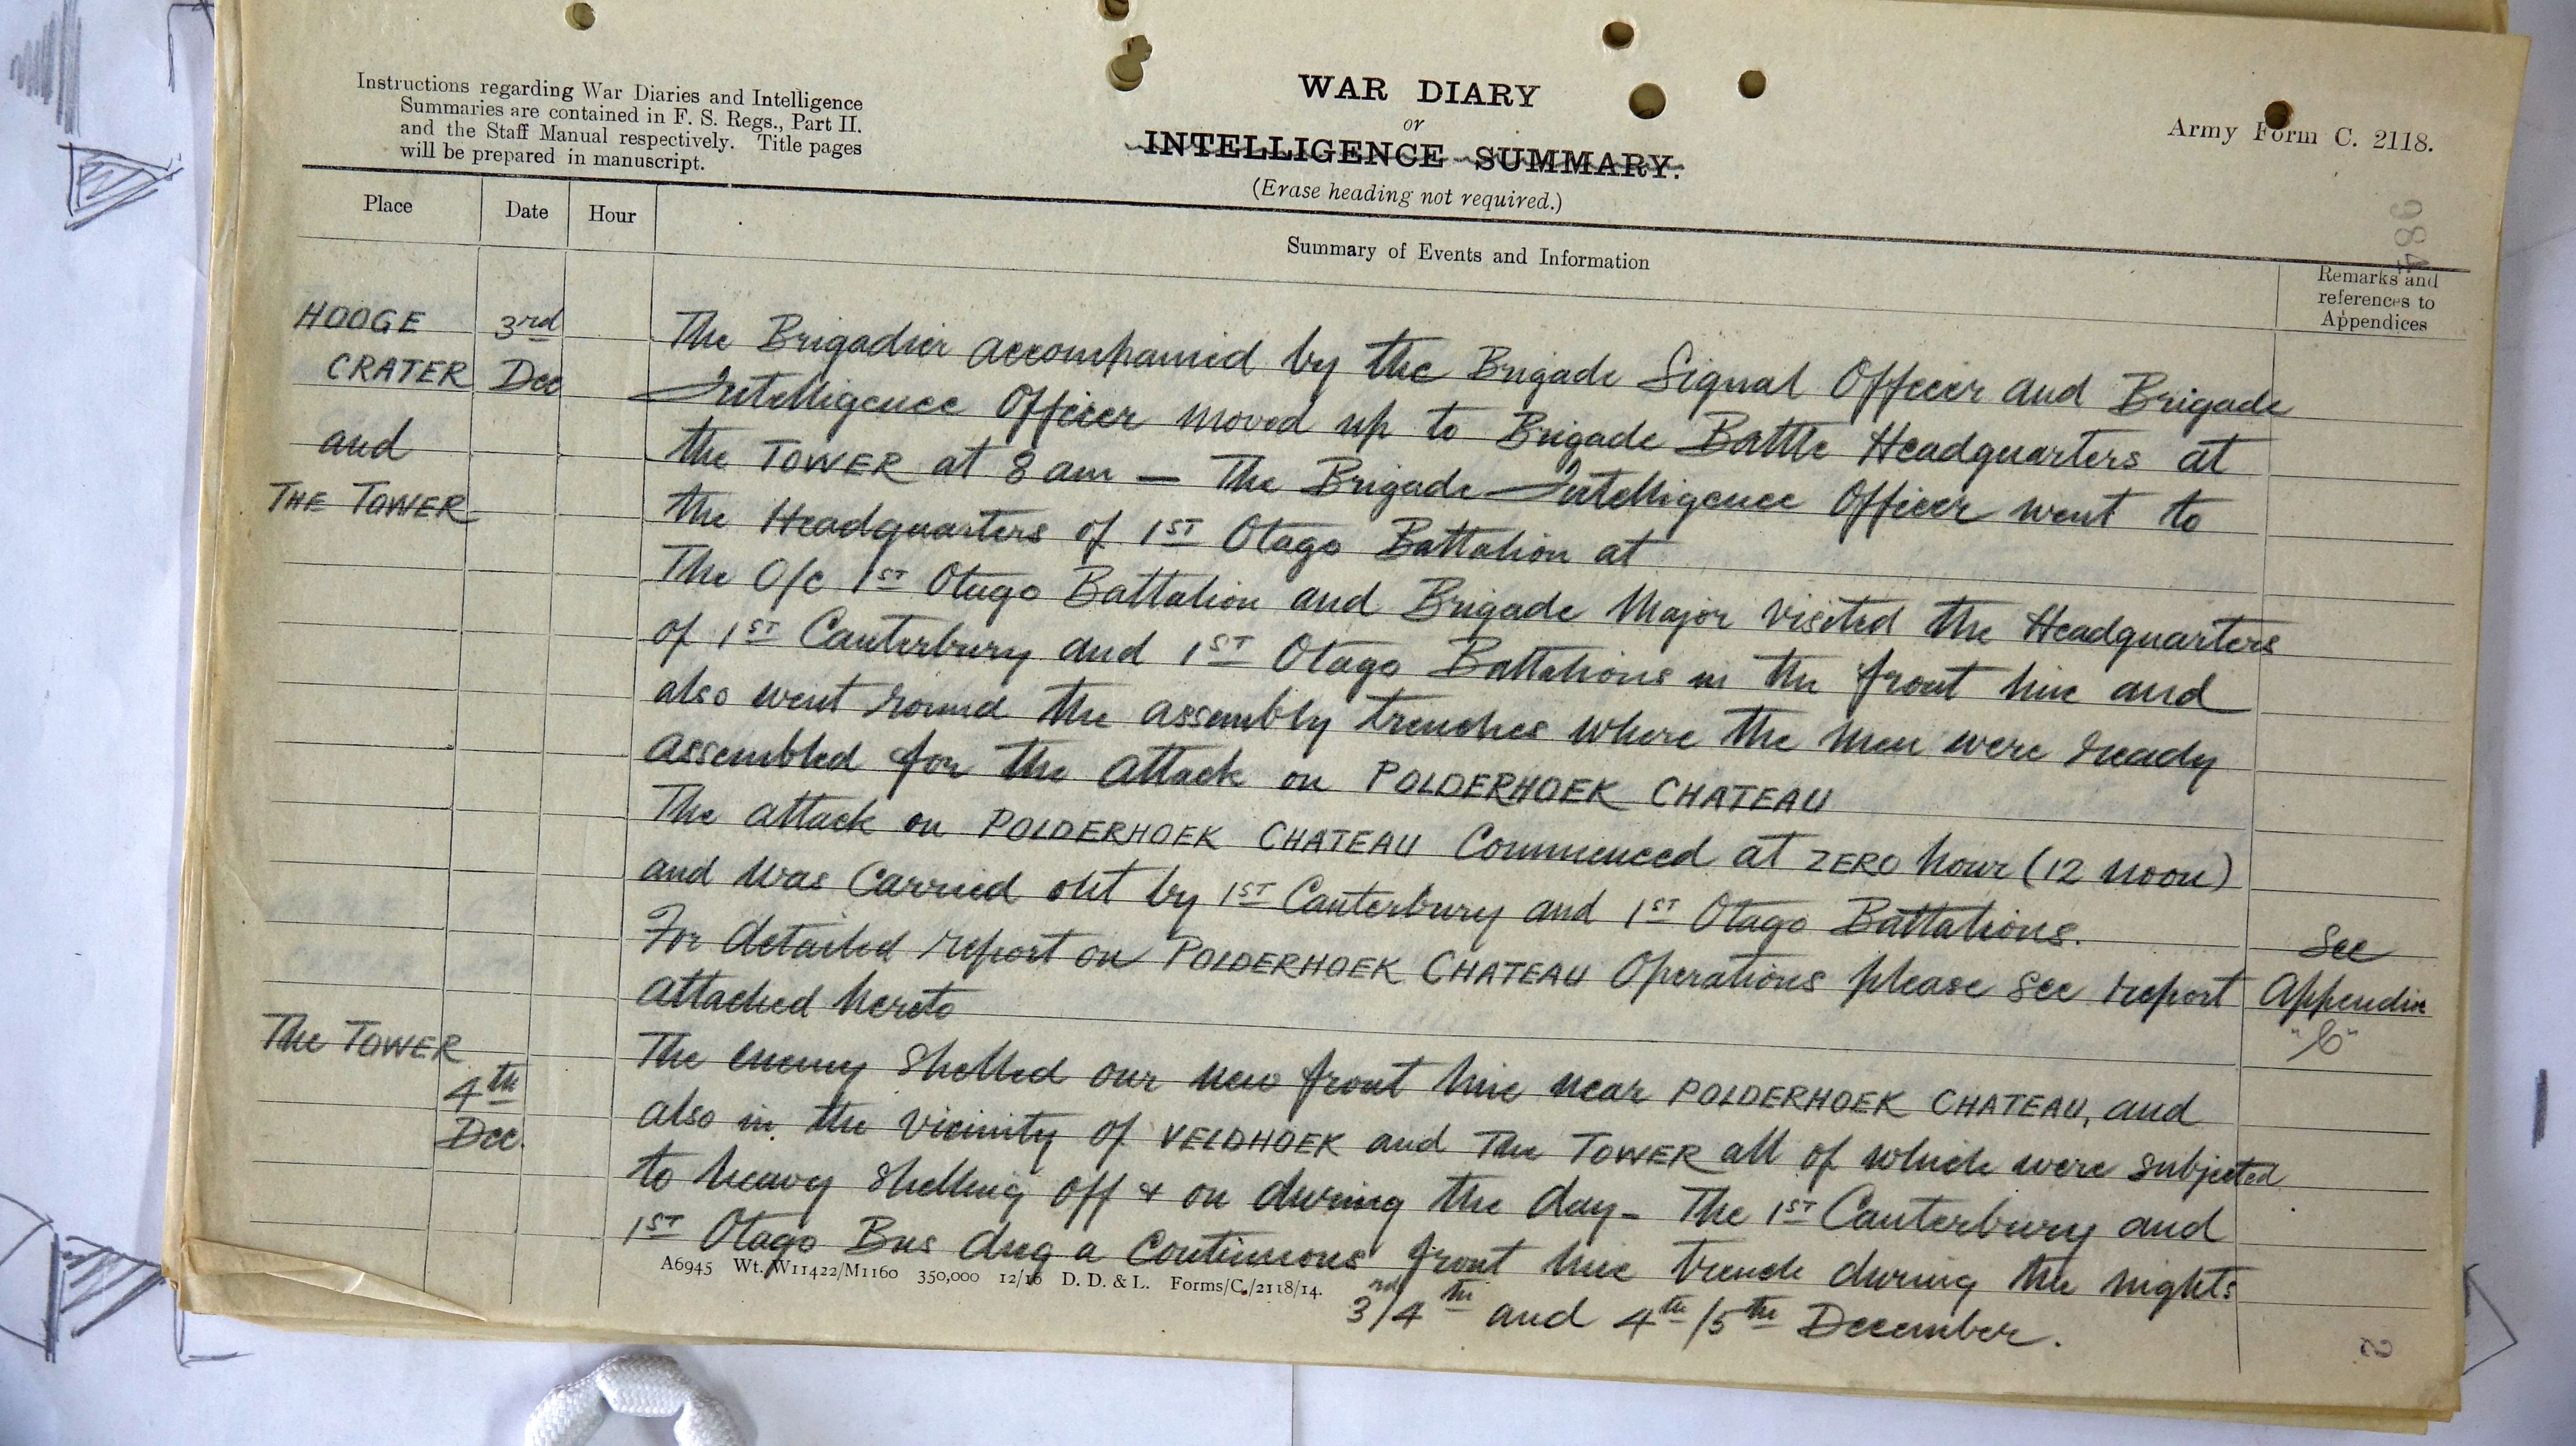 Instructions regarding War Diaries and Intelligence
Summaries are contained in F. S. Regs., Part II.
and the Staff Manual respectively. Title pages
will be prepared in manuscript.
WAR DIARY
or
INTELLIGENCE SUMMARY.
(Erase heading not required.)
Army Form C. 2118.
Place
Date
Hour
Summary of Events and Information
Remarks and
references to
Appendices
HOOGE
CRATER
and
THE TOWER
3rd
Dec
The Brigadier accompanied by the Brigade Signal Officer and Brigade
Intelligence Officer moved up to Brigade Battle Headquarters at
the TOWER at 8 am — The Brigade Intelligence Officer went to
the Headquarters of 1ST Otago Battalion at
The O/c 1ST Otago Battalion and Brigade Major visited the Headquarters
of 1ST Canterbury and 1ST Otago Battalions in the front line and
also went round the assembly trenches where the men were ready
assembled for the attack on POLDERHOEK CHATEAU
The attack on POLDERHOEK CHATEAU Commenced at ZERO hour (12 noon)
and was carried out by 1ST Canterbury and 1ST Otago Battalions.
For detailed report on POLDERHOEK CHATEAU Operations please see report
attached hereto
See
Appendix
The TOWER
4th
Dec.
The enemy shelled our new front line near POLDERHOEK CHATEAU, and
also in the vicinity of VELDHOEK and The TOWER all of which were subjected
to heavy shelling off & on during the day – The 1ST Canterbury and
1ST Otago Bns dug a continuous front line trench during the nights
3rd/4th and 4th/5th December.
A6945 Wt. W11422/M1160 350,000 12/16 D. D. & L. Forms/C./2118/14.
2